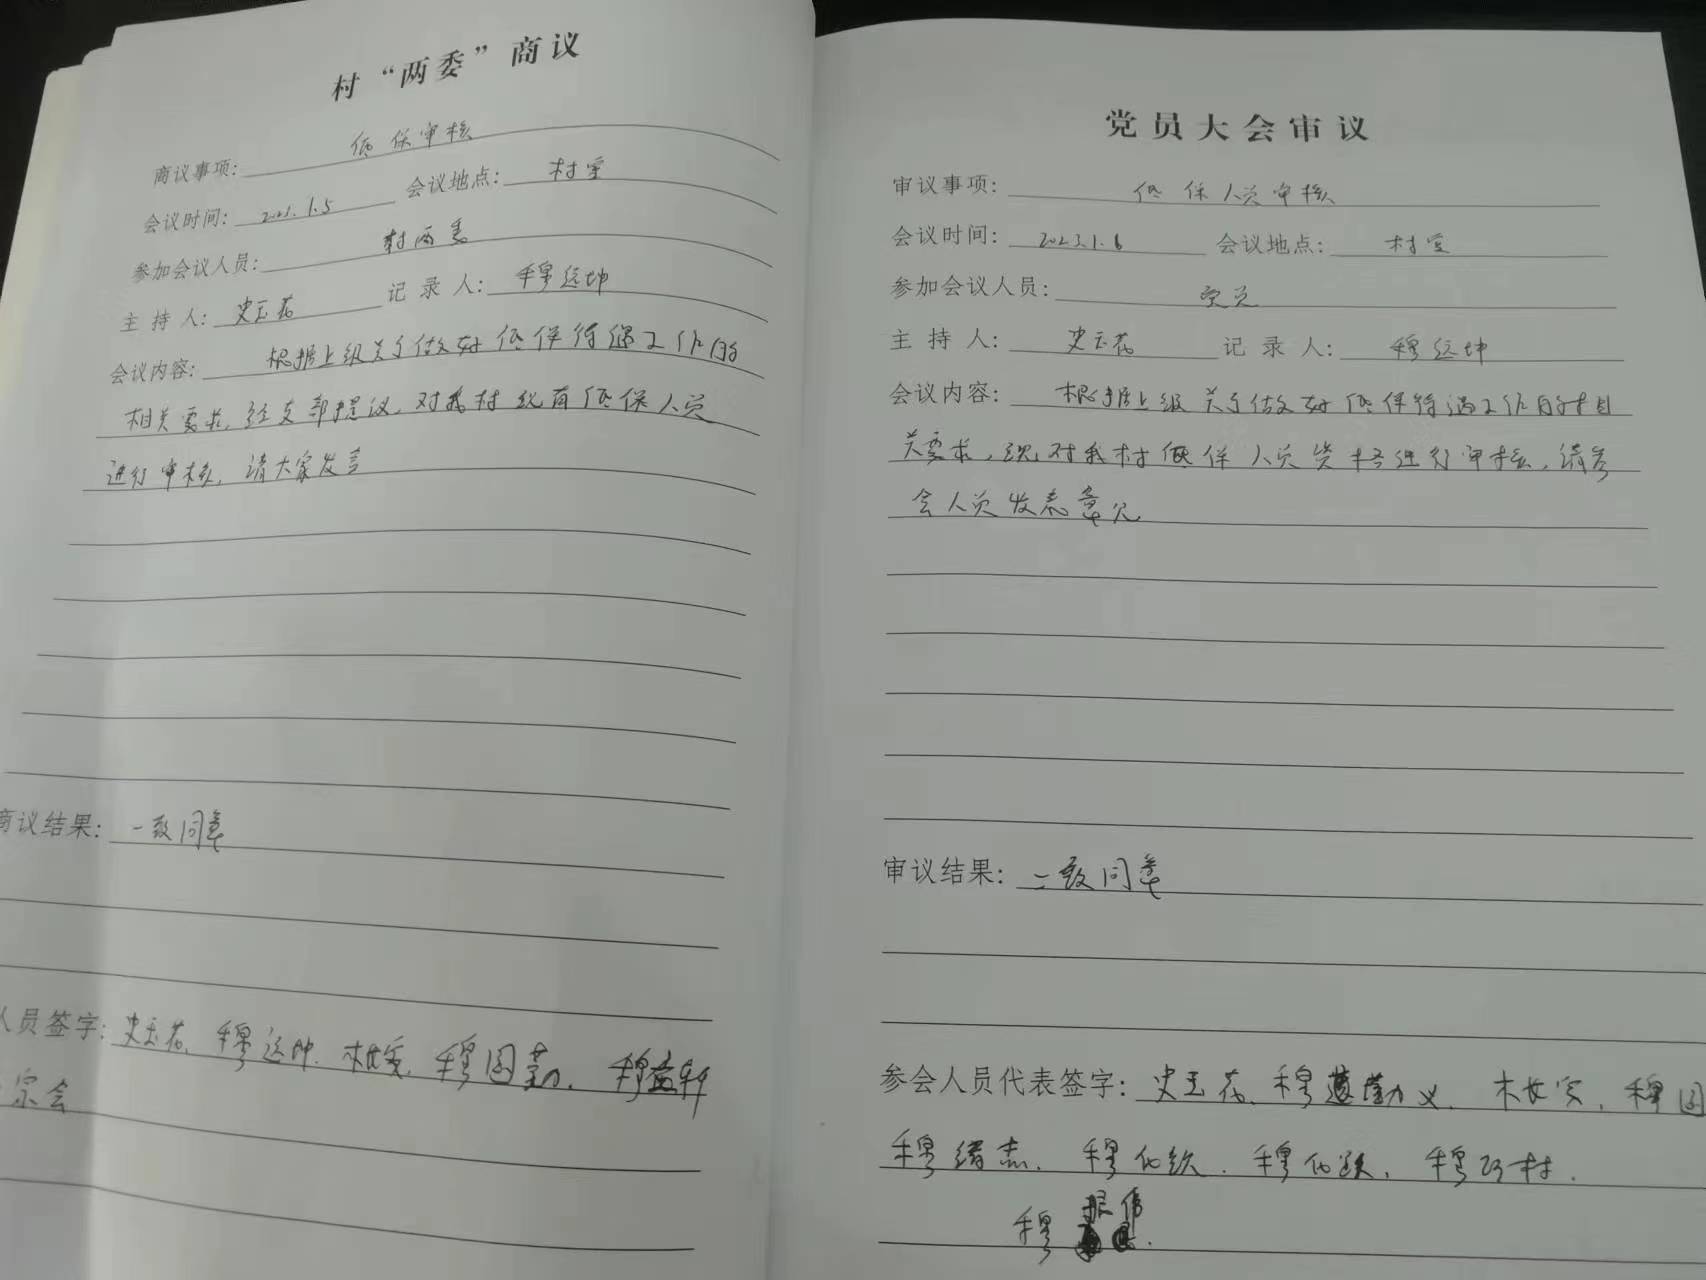 村“两委”商议
商议事项: 低保审核
会议时间: 2023.1.5 会议地点: 村室
参加会议人员: 村两委
主 持 人: 史玉花 记 录 人: 穆运坤
会议内容: 根据上级关于做好低保待遇工作的
相关要求,经支部提议,对我村现有低保人员
进行审核,请大家发言
商议结果: 一致同意
人员签字: 史玉花、穆运坤、穆图勤、穆益轩
宗会
党员大会审议
审议事项: 低保人员审核
会议时间: 2023.1.6 会议地点: 村室
参加会议人员: 党员
主 持 人: 史玉花 记 录 人: 穆运坤
会议内容: 根据上级关于做好低保待遇工作的相
关要求,现对我村低保人员资格进行审核,请参
会人员发表意见
审议结果: 一致同意
参会人员代表签字: 史玉花、穆
穆绪志、穆
穆